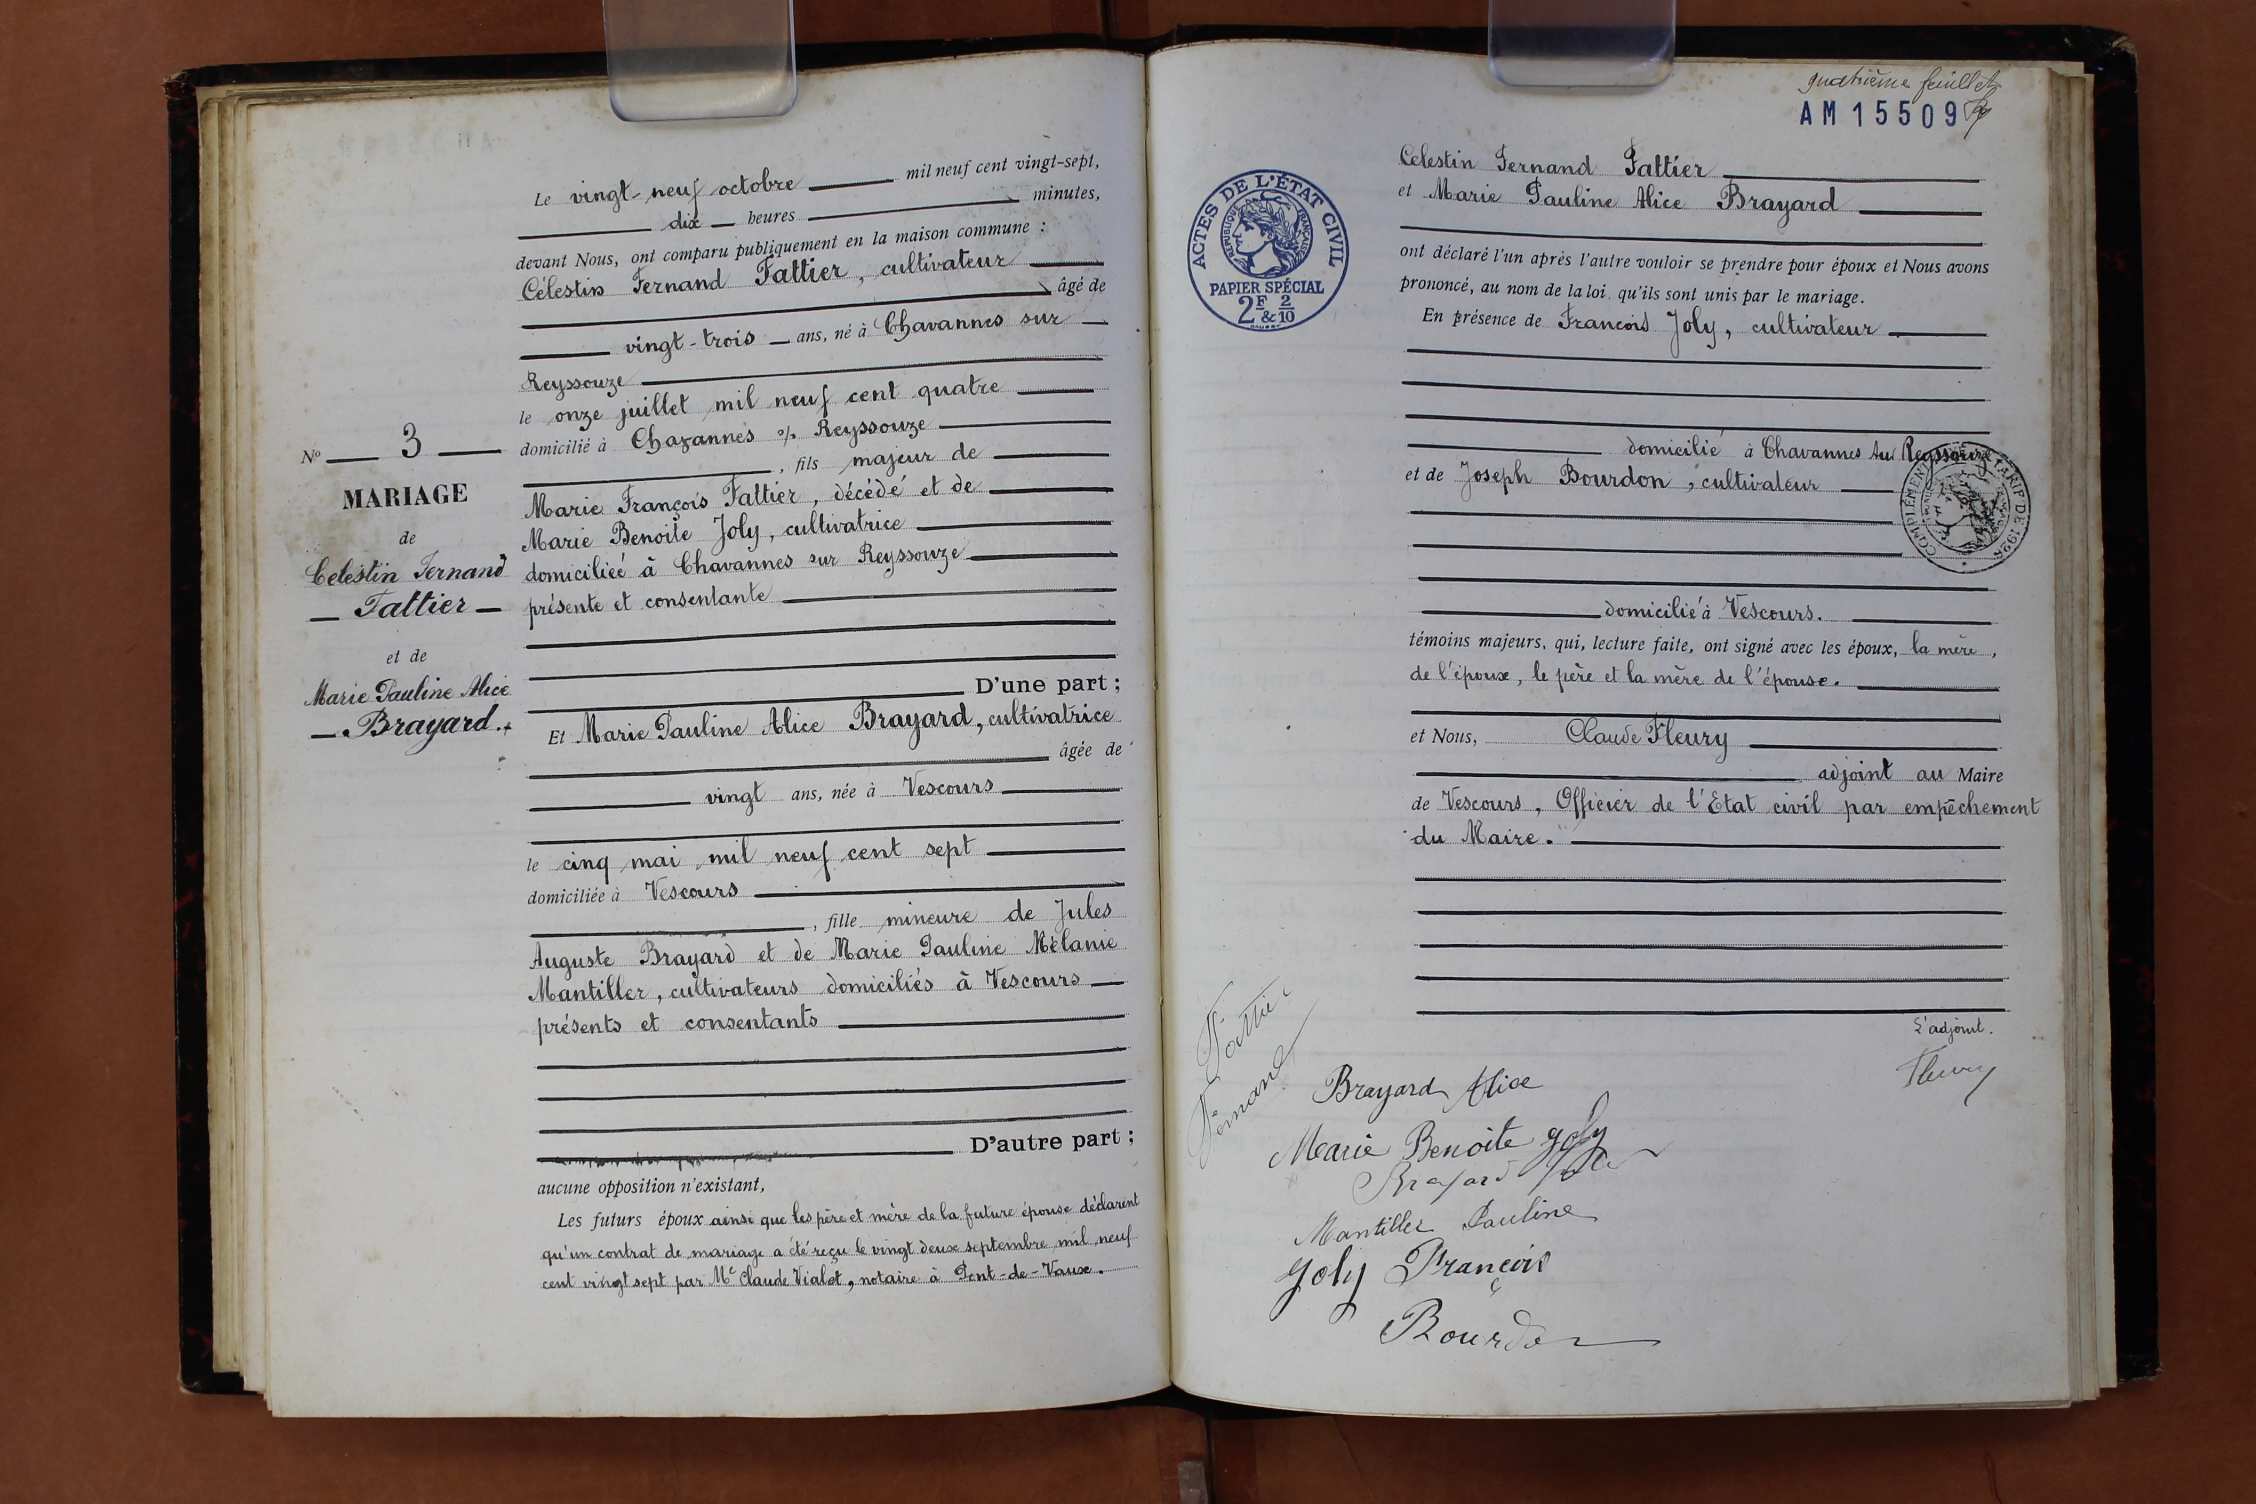 Le vingt-neuf octobre mil neuf cent vingt-sept,
dix heures minutes,
devant Nous, ont comparu publiquement en la maison commune :
Célestin Fernand Fattier, cultivateur
âgé de
vingt-trois ans, né à Chavannes sur
Reyssouze
le onze juillet mil neuf cent quatre
domicilié à Chavannes s/ Reyssouze
, fils majeur de
Marie François Fattier, décédé et de
Marie Benoite Joly, cultivatrice
domiciliée à Chavannes sur Reyssouze
présente et consentante
D'une part ;
Et Marie Pauline Alice Brayard, cultivatrice
âgée de
vingt ans, née à Vescours
le cinq mai mil neuf cent sept
domiciliée à Vescours
, fille mineure de Jules
Auguste Brayard et de Marie Pauline Mélanie
Mantiller, cultivateurs domiciliés à Vescours
présents et consentants
D'autre part ;
aucune opposition n'existant,
Les futurs époux ainsi que les père et mère de la future épouse déclarent
qu'un contrat de mariage a été reçu le vingt deux septembre mil neuf
cent vingt sept par Me Claude Vialet, notaire à Pont-de-Vaux.
No 3
MARIAGE
de
Celestin Fernand
Fattier
et de
Marie Pauline Alice
Brayard.
quatrième feuillet
AM15509
ACTES DE L'ÉTAT CIVIL
RÉPUBLIQUE FRANÇAISE
PAPIER SPÉCIAL
2F & 2/10
Celestin Fernand Fattier
et Marie Pauline Alice Brayard
ont déclaré l'un après l'autre vouloir se prendre pour époux et Nous avons
prononcé, au nom de la loi, qu'ils sont unis par le mariage.
En présence de François Joly, cultivateur
domicilié à Chavannes sur Reyssouze
et de Joseph Bourdon, cultivateur
COMPLÉMENT TARIF DE 1926
domicilié à Vescours.
témoins majeurs, qui, lecture faite, ont signé avec les époux, la mère,
de l'époux, le père et la mère de l'épouse.
et Nous, Claude Fleury
adjoint au Maire
de Vescours, Officier de l'Etat civil par empêchement
du Maire.
L'adjoint.
Fleury
Fattier
Fernand
Brayard Alice
Marie Benoite Joly
Brayard
Mantiller Pauline
Joly François
Bourdon